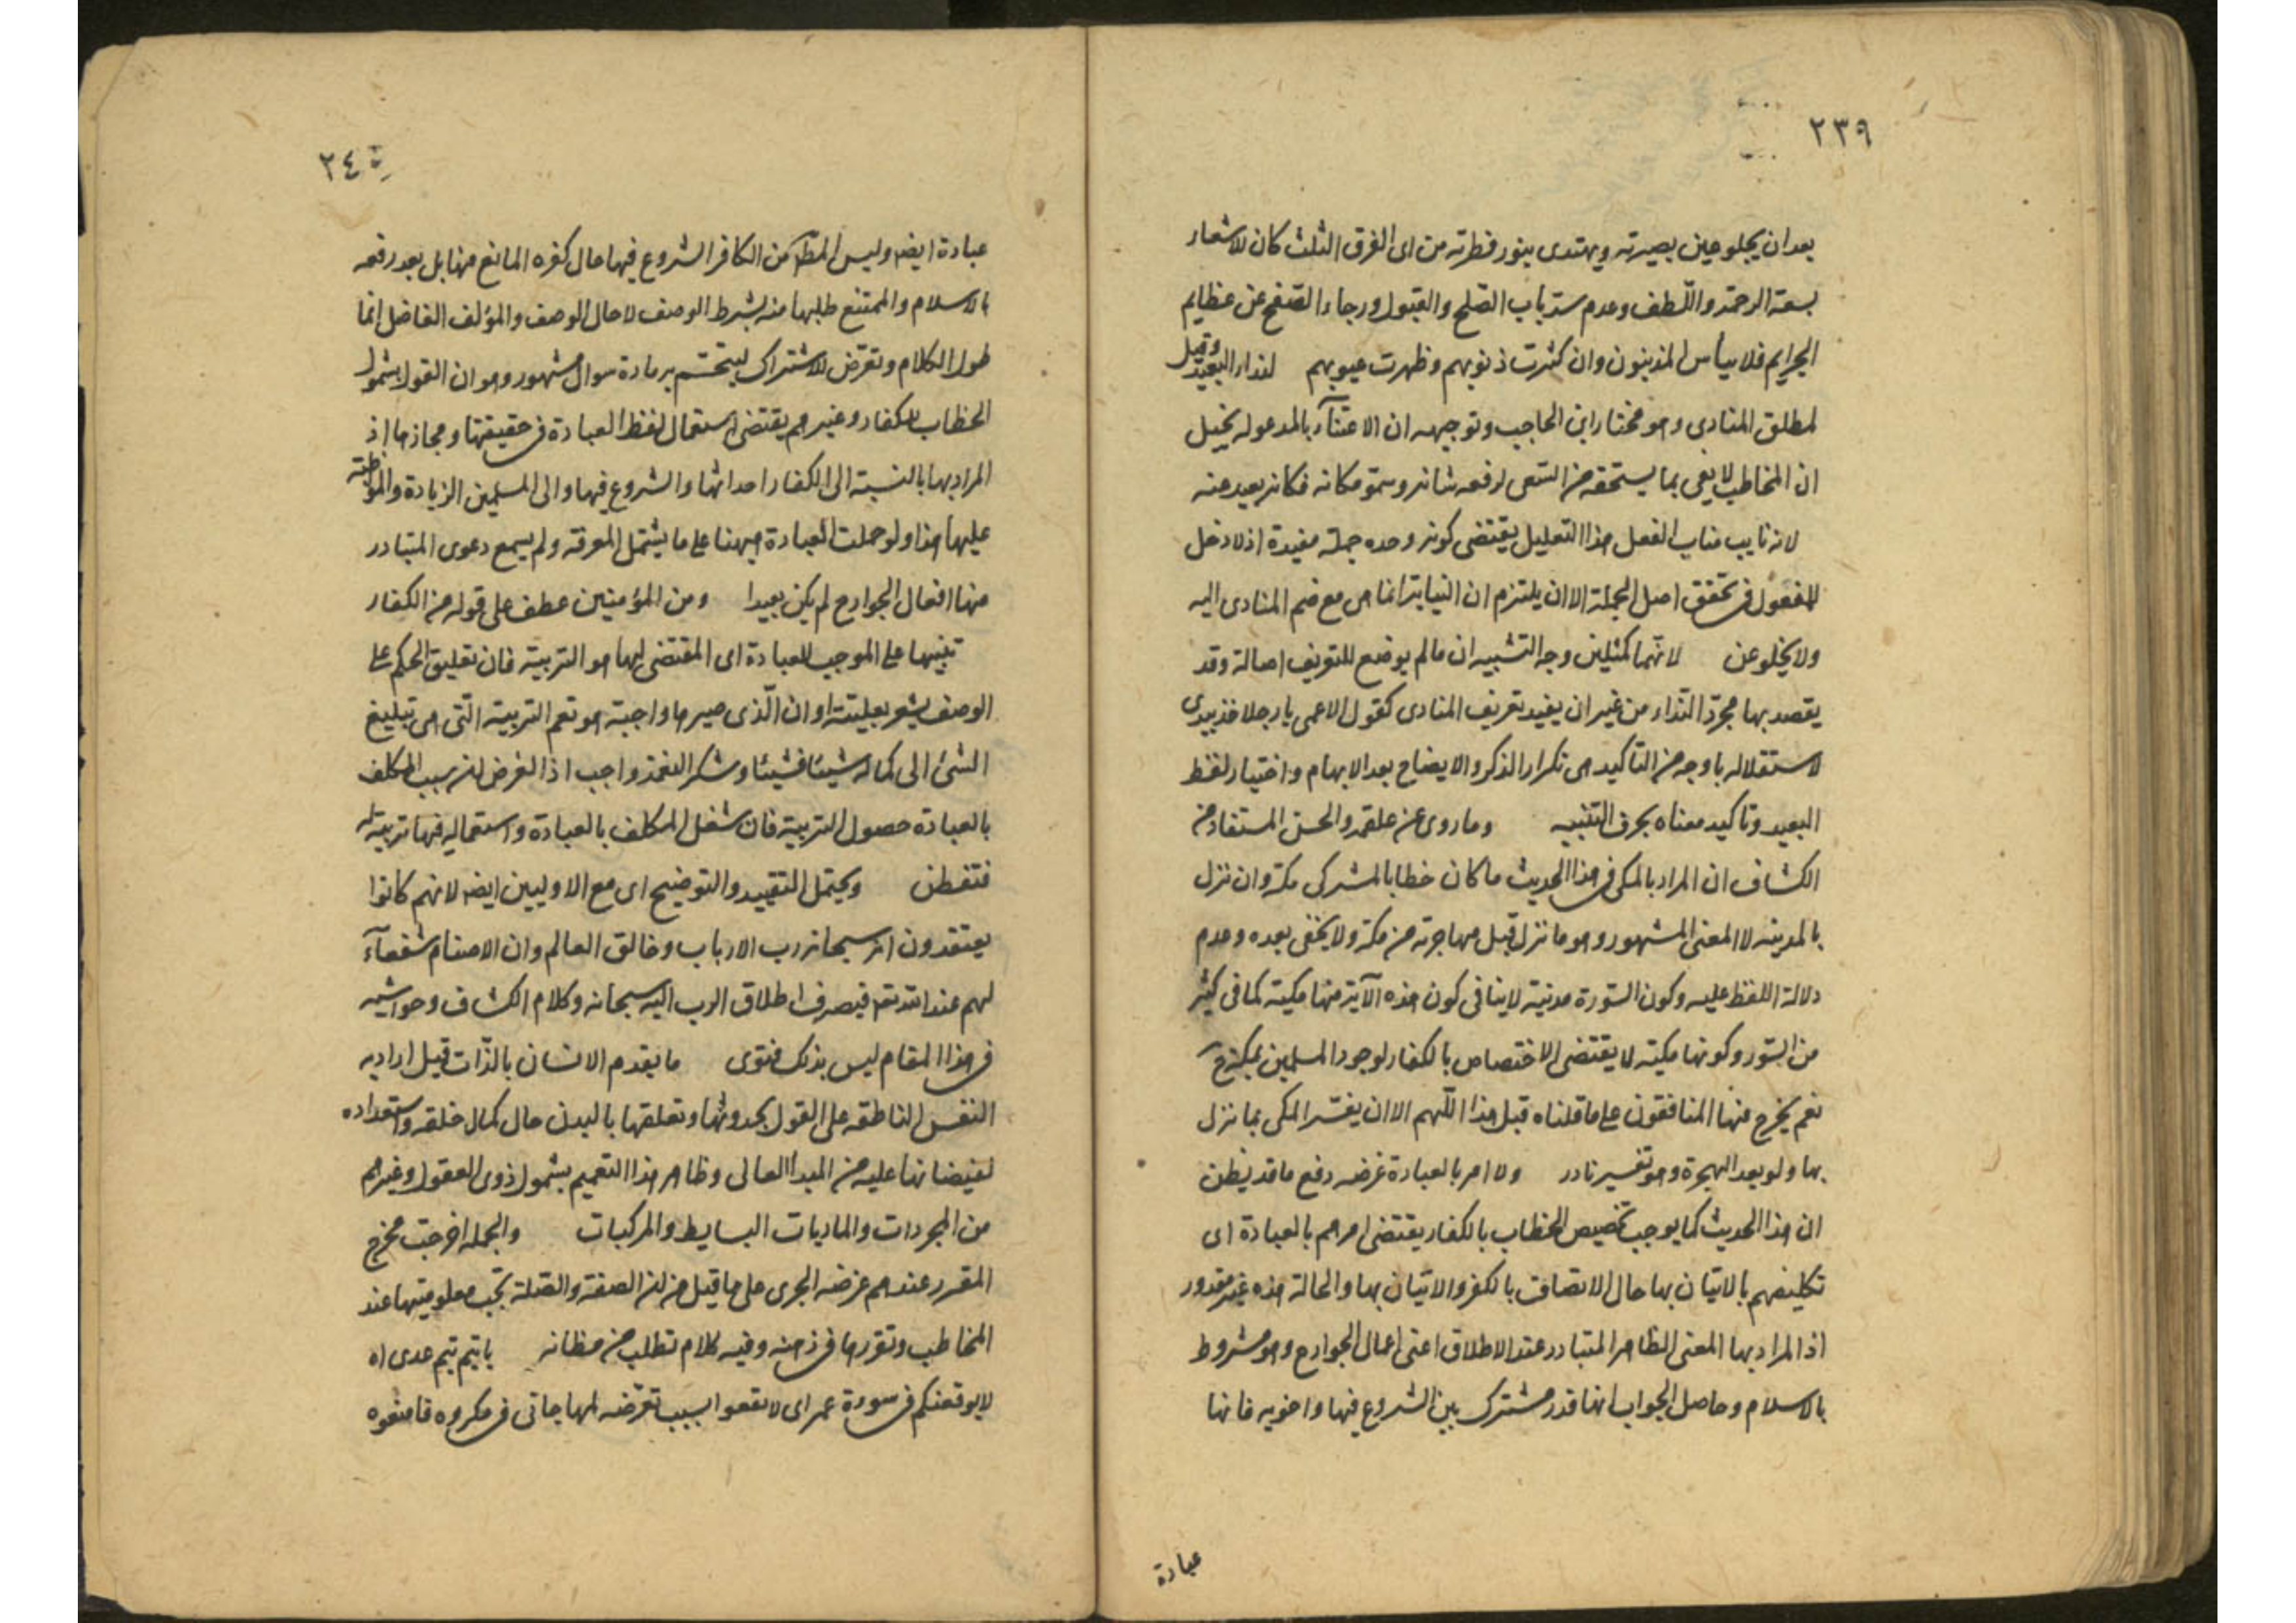 ٢٣٩
بعد ان يجلو عين بصيرته ويهتدى بنور فطرته من اى الفرق الثلث كان للاشعار
بسعة الرحمة واللّطف وعدم سدّ باب الصّلح والقبول ورجاء الصّفح عن عظايم
الجرايم فلا ييأس المذنبون وان كثرت ذنوبهم وظهرت عيوبهم لنداء البعيد وقيل
لمطلق المنادى وهو مختار ابن الحاجب وتوجيهه ان الاعتنآء بالمدعو له يخيل
ان المخاطب لا يفى بما يستحقه من السّعى لرفعة شانه وسموّ مكانه فكانه بعيد عنه
لانه نايب مناب الفعل هذا التعليل يقتضى كونه وحده جملة مفيدة اذ لا دخل
للمفعول فى تحقق اصل الجملة الا ان يلتزم ان النيابة انما هى مع ضم المنادى اليه
ولا يخلو عن لانّهما كمثلين وجه التشبيه ان ما لم يوضع للتعريف اصالة وقد
يقصد بها مجرّد النّداء من غير ان يفيد تعريف المنادى كقول الاعمى يا رجلا خذ بيدى
لاستقلاله باوجه من التأكيد هى تكرار الذكر والايضاح بعد الابهام واختيار لفظ
البعيد وتاكيد معناه بحرف التنبيه وما روى عن علقمة والحسن المستفاد من
الكشاف ان المراد بالمكى فى هذا الحديث ما كان خطابا لمشركى مكة وان نزل
بالمدينه لا المعنى المشهور وهو ما نزل قبل مهاجرته من مكة ولا يخفى بعده وعدم
دلالة اللفظ عليه وكون السّورة مدنية لا ينافى كون هذه الآية منها مكية كما فى كثير
من السّور وكونها مكية لا يقتضى الاختصاص بالكفار لوجود المسلمين بمكة ح
نعم يخرج منها المنافقون على ما قلناه قبل هذا اللّهم الا ان يفسّر المكى بما نزل
بها ولو بعد الهجرة وهو تفسير نادر ولا امر بالعبادة غرضه دفع ما قد يظن
ان هذا الحديث كما يوجب تخصيص الخطاب بالكفار يقتضى امرهم بالعبادة اى
تكليفهم بالاتيان بها حال الاتصاف بالكفر والاتيان بها والحالة هذه غير مقدور
اذ المراد بها المعنى الظاهر المتبادر عند الاطلاق اعنى اعمال الجوارح وهو مشروط
بالاسلام وحاصل الجواب انها قدر مشترك بين الشروع فيها واخويه فانها
عبادة
٢٤٠
عبادة ايضا وليس المطّ من الكافر الشروع فيها حال كفره المانع منها بل بعد رفعه
بالاسلام والممتنع طلبها منه بشرط الوصف لا حال الوصف والمؤلف الفاضل انما
طول الكلام وتعرّض للاشتراك ليتحسّم به مادة سوال مشهور وهو ان القول بشمول
الخطاب للكفار وغيرهم يقتضى استعمال لفظ العبادة فى حقيقتها ومجازها اذ
المراد بها بالنسبة الى الكفار احداثها والشروع فيها والى المسلمين الزيادة والمواظبة
عليها هذا ولو حملت العبادة ههنا على ما يشتمل المعرفة ولم يسمع دعوى المتبادر
منها افعال الجوارح لم يكن بعيدا ومن المؤمنين عطف على قوله من الكفار
تنبيها على الموجب للعبادة اى المقتضى لها هو التربية فان تعليق الحكم على
الوصف يشعر بعليته او ان الّذى صيرها واجبة هو نعم التربية الّتى هى تبليغ
الشئ الى كماله شيئا فشيئا وشكر النعمة واجب اذ الغرض من المكلف
بالعبادة حصول التربية فان شغل المكلف بالعبادة واستعماله فيها تربية له
فتفطن ويحتمل التقييد والتوضيح اى مع الاوليين ايضا لانهم كانوا
يعتقدون انه سبحانه رب الارباب وخالق العالم وان الاصنام شفعآء
لهم عند الله تعم فينصرف اطلاق الرب اليه سبحانه وكلام الكشاف وحواشيه
فى هذا المقام ليس بذلك فتوى ما يقدم الانسان بالذّات قيل اراد به
النفس الناطقة على القول بحدوثها وتعلقها بالبدن حال كمال خلقه واستعداده
لفيضانها عليه من المبدأ العالى وظاهر هذا التعميم بشمول ذوى العقول وغيرهم
من المجردات والماديات البسايط والمركبات والجملة اخرجت مخرج
المقرر عندهم غرضه الجرى على ما قيل من ان الصفة والصّلة تجب معلوميتها عند
المخاطب وتقررها فى ذهنه وفيه كلام تطلب من مظانه يا تيم تيم عدى اه
لا يوقعنكم فى سورة عمر اى لا تقعوا بسبب تعرّضه لمهاجاتى فى مكروه فامنعوه